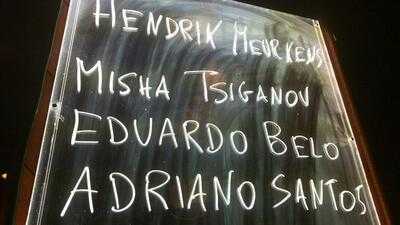 HENDRIK MEURKENS
MISHA TSIGANOV
EDUARDO BELO
ADRIANO SANTOS